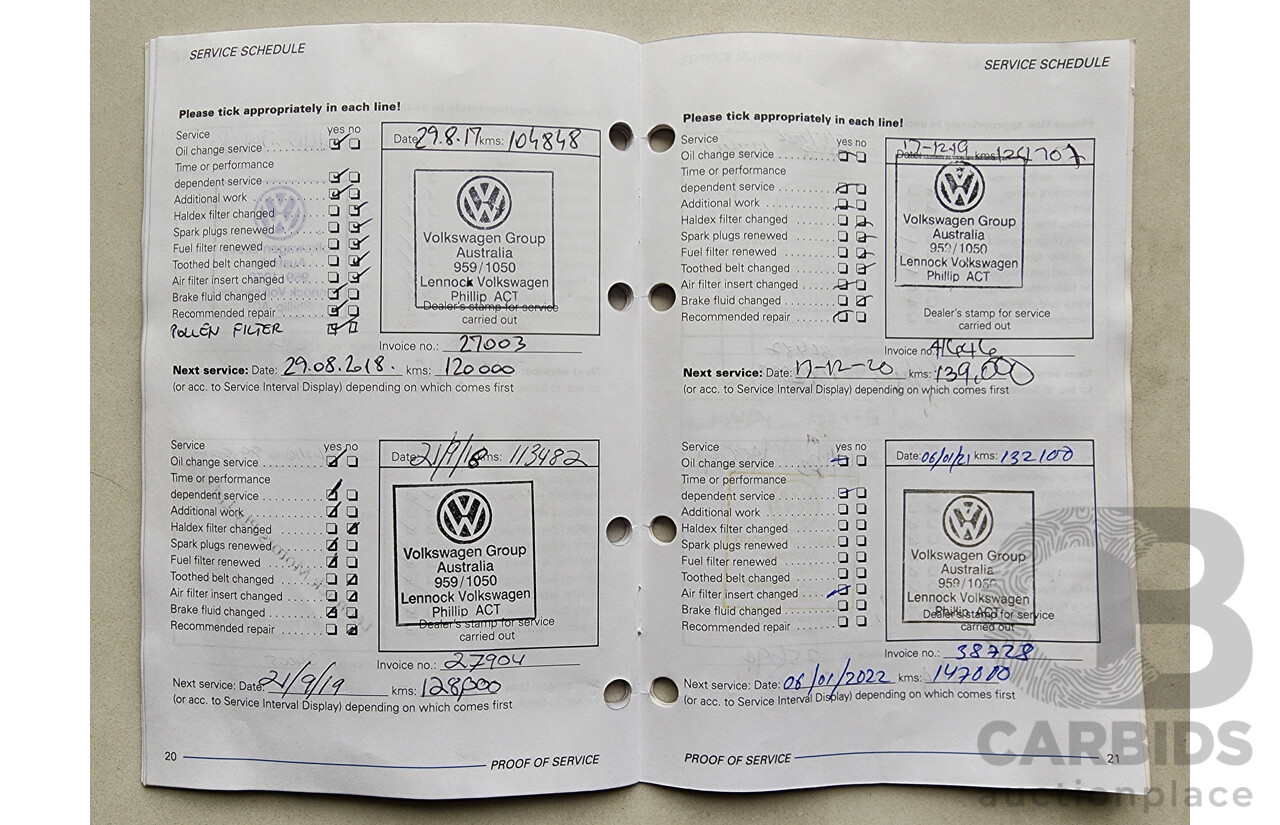 SERVICE SCHEDULE
Please tick appropriately in each line!
Service yes no
Oil change service
Time or performance
dependent service
Additional work
Haldex filter changed
Spark plugs renewed
Fuel filter renewed
Toothed belt changed
Air filter insert changed
Brake fluid changed
Recommended repair
POLLEN FILTER
Date: 29.8.17 kms: 104848
Volkswagen Group
Australia
959/1050
Lennock Volkswagen
Phillip ACT
Dealer's stamp for service
carried out
Invoice no.: 27003
Next service: Date: 29.08.2018. kms: 120000
(or acc. to Service Interval Display) depending on which comes first
Service yes no
Oil change service
Time or performance
dependent service
Additional work
Haldex filter changed
Spark plugs renewed
Fuel filter renewed
Toothed belt changed
Air filter insert changed
Brake fluid changed
Recommended repair
Date: 21/9/18 kms: 113482
Volkswagen Group
Australia
959/1050
Lennock Volkswagen
Phillip ACT
Dealer's stamp for service
carried out
Invoice no.: 27904
Next service: Date: 21/9/19 kms: 128,000
(or acc. to Service Interval Display) depending on which comes first
20 PROOF OF SERVICE
SERVICE SCHEDULE
Please tick appropriately in each line!
Service yes no
Oil change service
Time or performance
dependent service
Additional work
Haldex filter changed
Spark plugs renewed
Fuel filter renewed
Toothed belt changed
Air filter insert changed
Brake fluid changed
Recommended repair
Date: 17-12-19 kms:
Volkswagen Group
Australia
959/1050
Lennock Volkswagen
Phillip ACT
Dealer's stamp for service
carried out
Invoice no.:
Next service: Date: 17-12-20 kms: 139,000
(or acc. to Service Interval Display) depending on which comes first
Service yes no
Oil change service
Time or performance
dependent service
Additional work
Haldex filter changed
Spark plugs renewed
Fuel filter renewed
Toothed belt changed
Air filter insert changed
Brake fluid changed
Recommended repair
Date: 06/01/21 kms: 132100
Volkswagen Group
Australia
959/1050
Lennock Volkswagen
Phillip ACT
Dealer's stamp for service
carried out
Invoice no.: 38728
Next service: Date: 06/01/2022 kms: 147000
(or acc. to Service Interval Display) depending on which comes first
PROOF OF SERVICE 21
CARBIDS
auctionplace